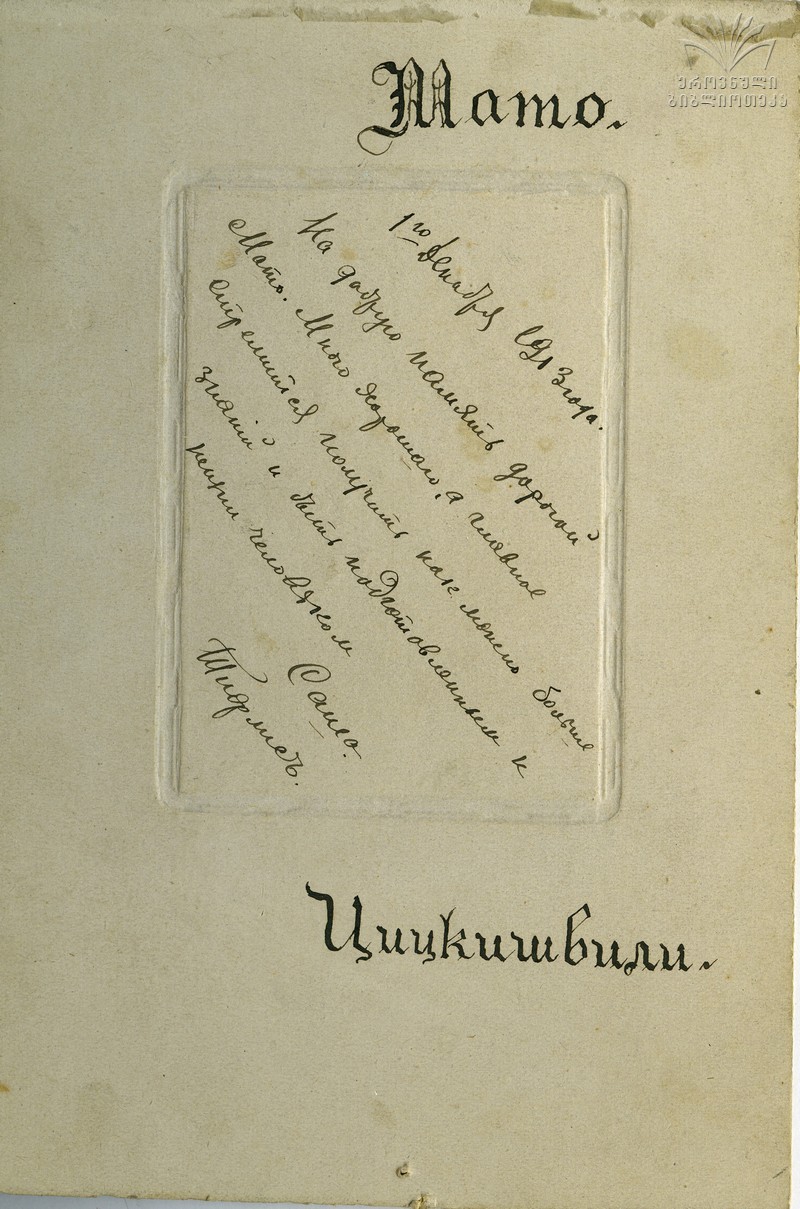 Мато.
ეროვნული
ბიბლიოთეკა
1го Декабря 1913 года.
На добрую память дорогой
Мато. Много хорошаго, а главное
стремится получить как можно больше
знаній и быть подготовленным к
жизни человѣком
Сашо.
Тифлисъ.
Цицкишвили.